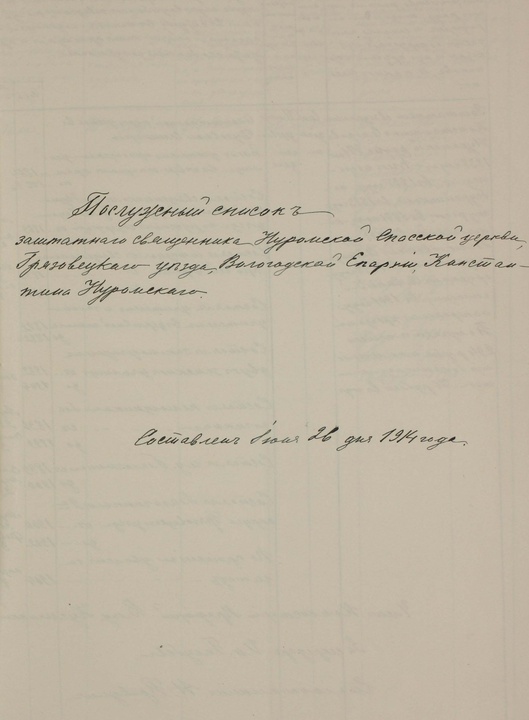 Послужный списокъ
заштатнаго священника Нуромской Спосской церкви,
Грязовецкаго уѣзда, Вологодской Епархіи, Констан-
тина Нуромскаго.
Составленъ Іюня 26 дня 1914 года.